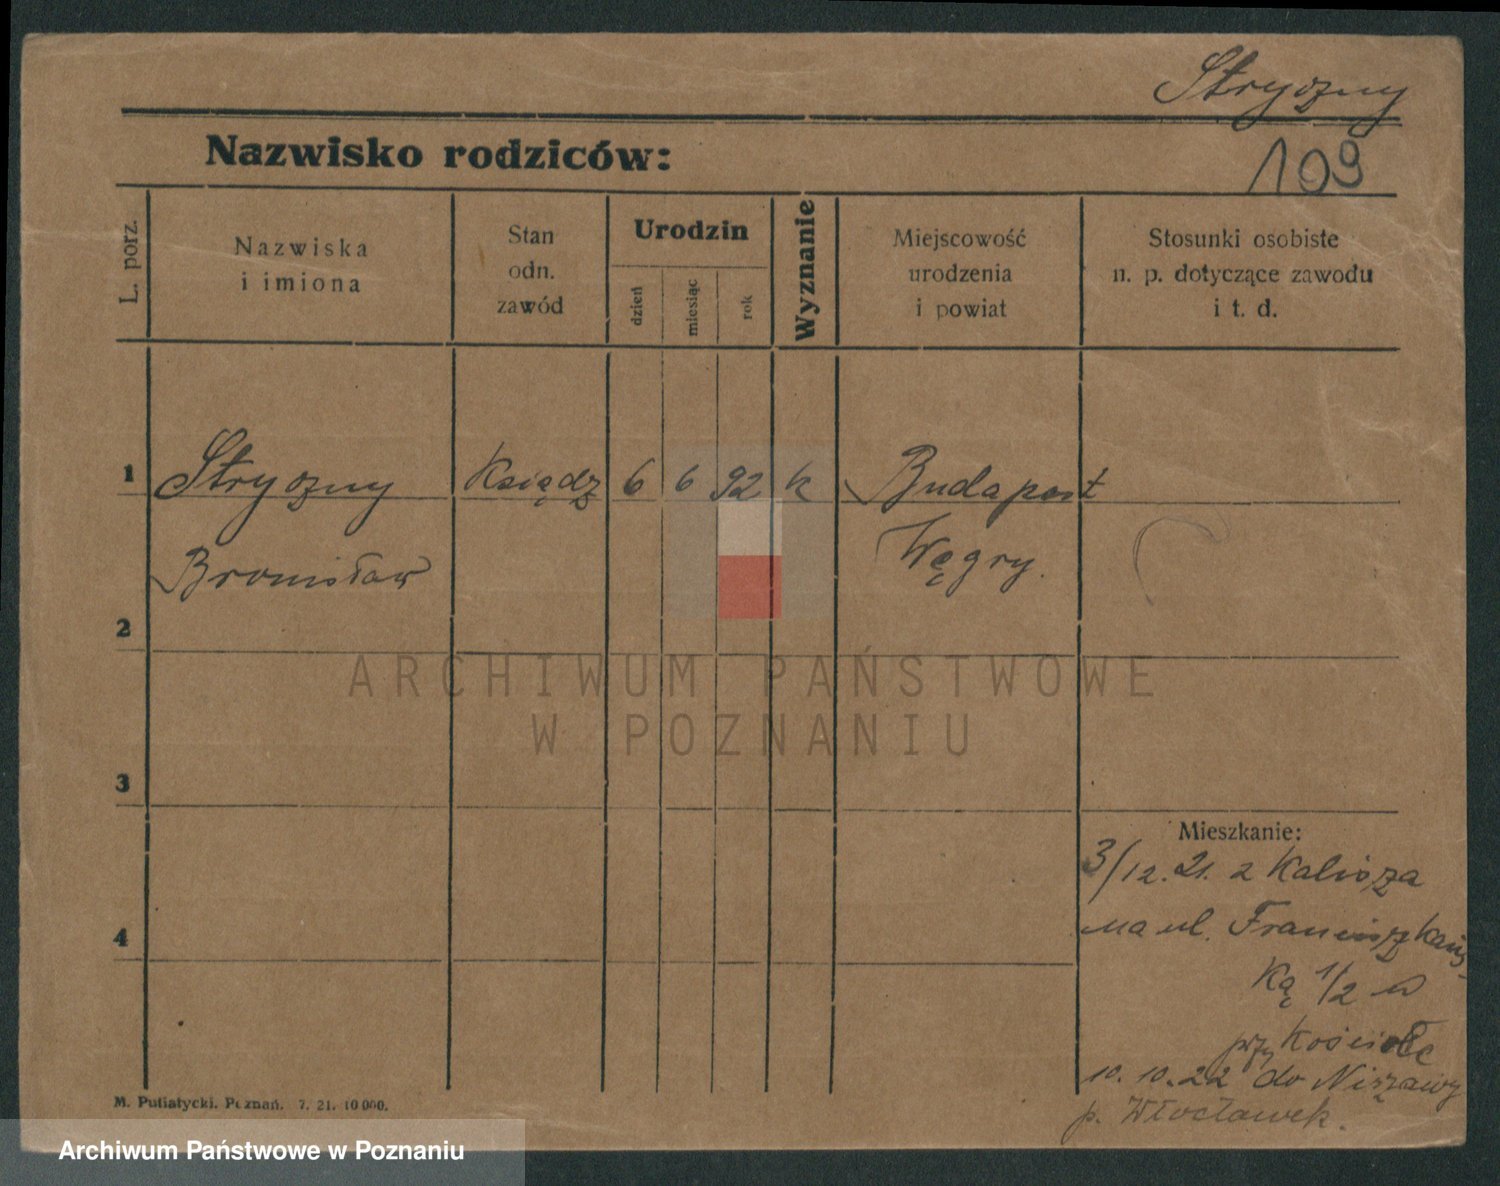 Stryszny
109
Nazwisko rodziców:
L. porz.
Nazwiska
i imiona
Stan
odn.
zawód
Urodzin
dzień
miesiąc
rok
Wyznanie
Miejscowość
urodzenia
i powiat
Stosunki osobiste
n. p. dotyczące zawodu
i t. d.
1
Stryszny Ksiądz 6 6 92 k Budapest
Bronisław Węgry.
2
ARCHIWUM PAŃSTWOWE
W POZNANIU
3
Mieszkanie:
3/12.21. z Kalisza
4
na ul. Franciszkańs-
ką 1/2
przy Kościele
10.10.22 do Niszawy
p. Włocławek.
M. Putiatycki. Poznań. 7. 21. 10 000.
Archiwum Państwowe w Poznaniu